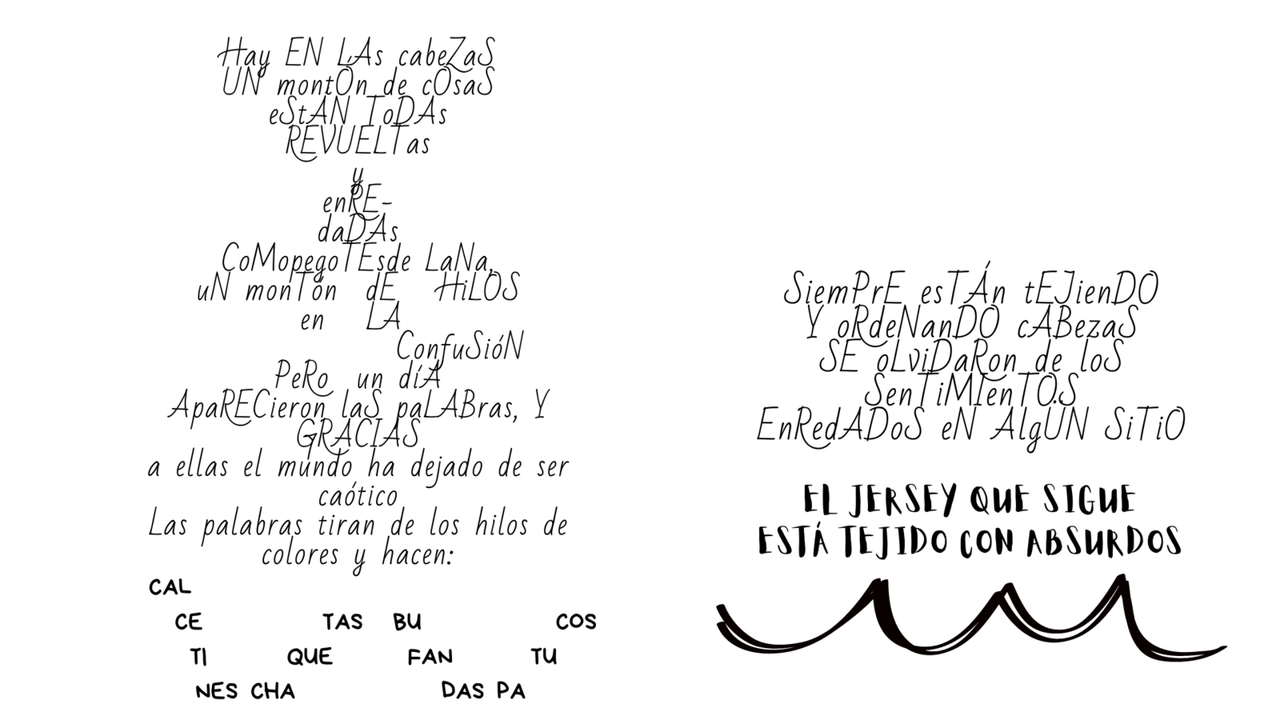 Hay EN LAs cabeZaS
UN montOn de cOsaS
eStAN ToDAs
REVUELTas
y
enRE-
daDAs
CoMopegoTEsde LaNa,
uN monTón dE HiLOS
en LA
ConfuSióN
PeRo un díA
ApaRECieron laS paLABras, Y
GRACIAS
a ellas el mundo ha dejado de ser
caótico
Las palabras tiran de los hilos de
colores y hacen:
CAL
CE TAS BU COS
TI QUE FAN TU
NES CHA DAS PA
SiemPrE esTÁn tEJienDO
Y oRdeNanDO cABezaS
SE oLviDaRon de loS
SenTiMIenTO.S
EnRedADoS eN AlgUN SiTiO
EL JERSEY QUE SIGUE
ESTÁ TEJIDO CON ABSURDOS